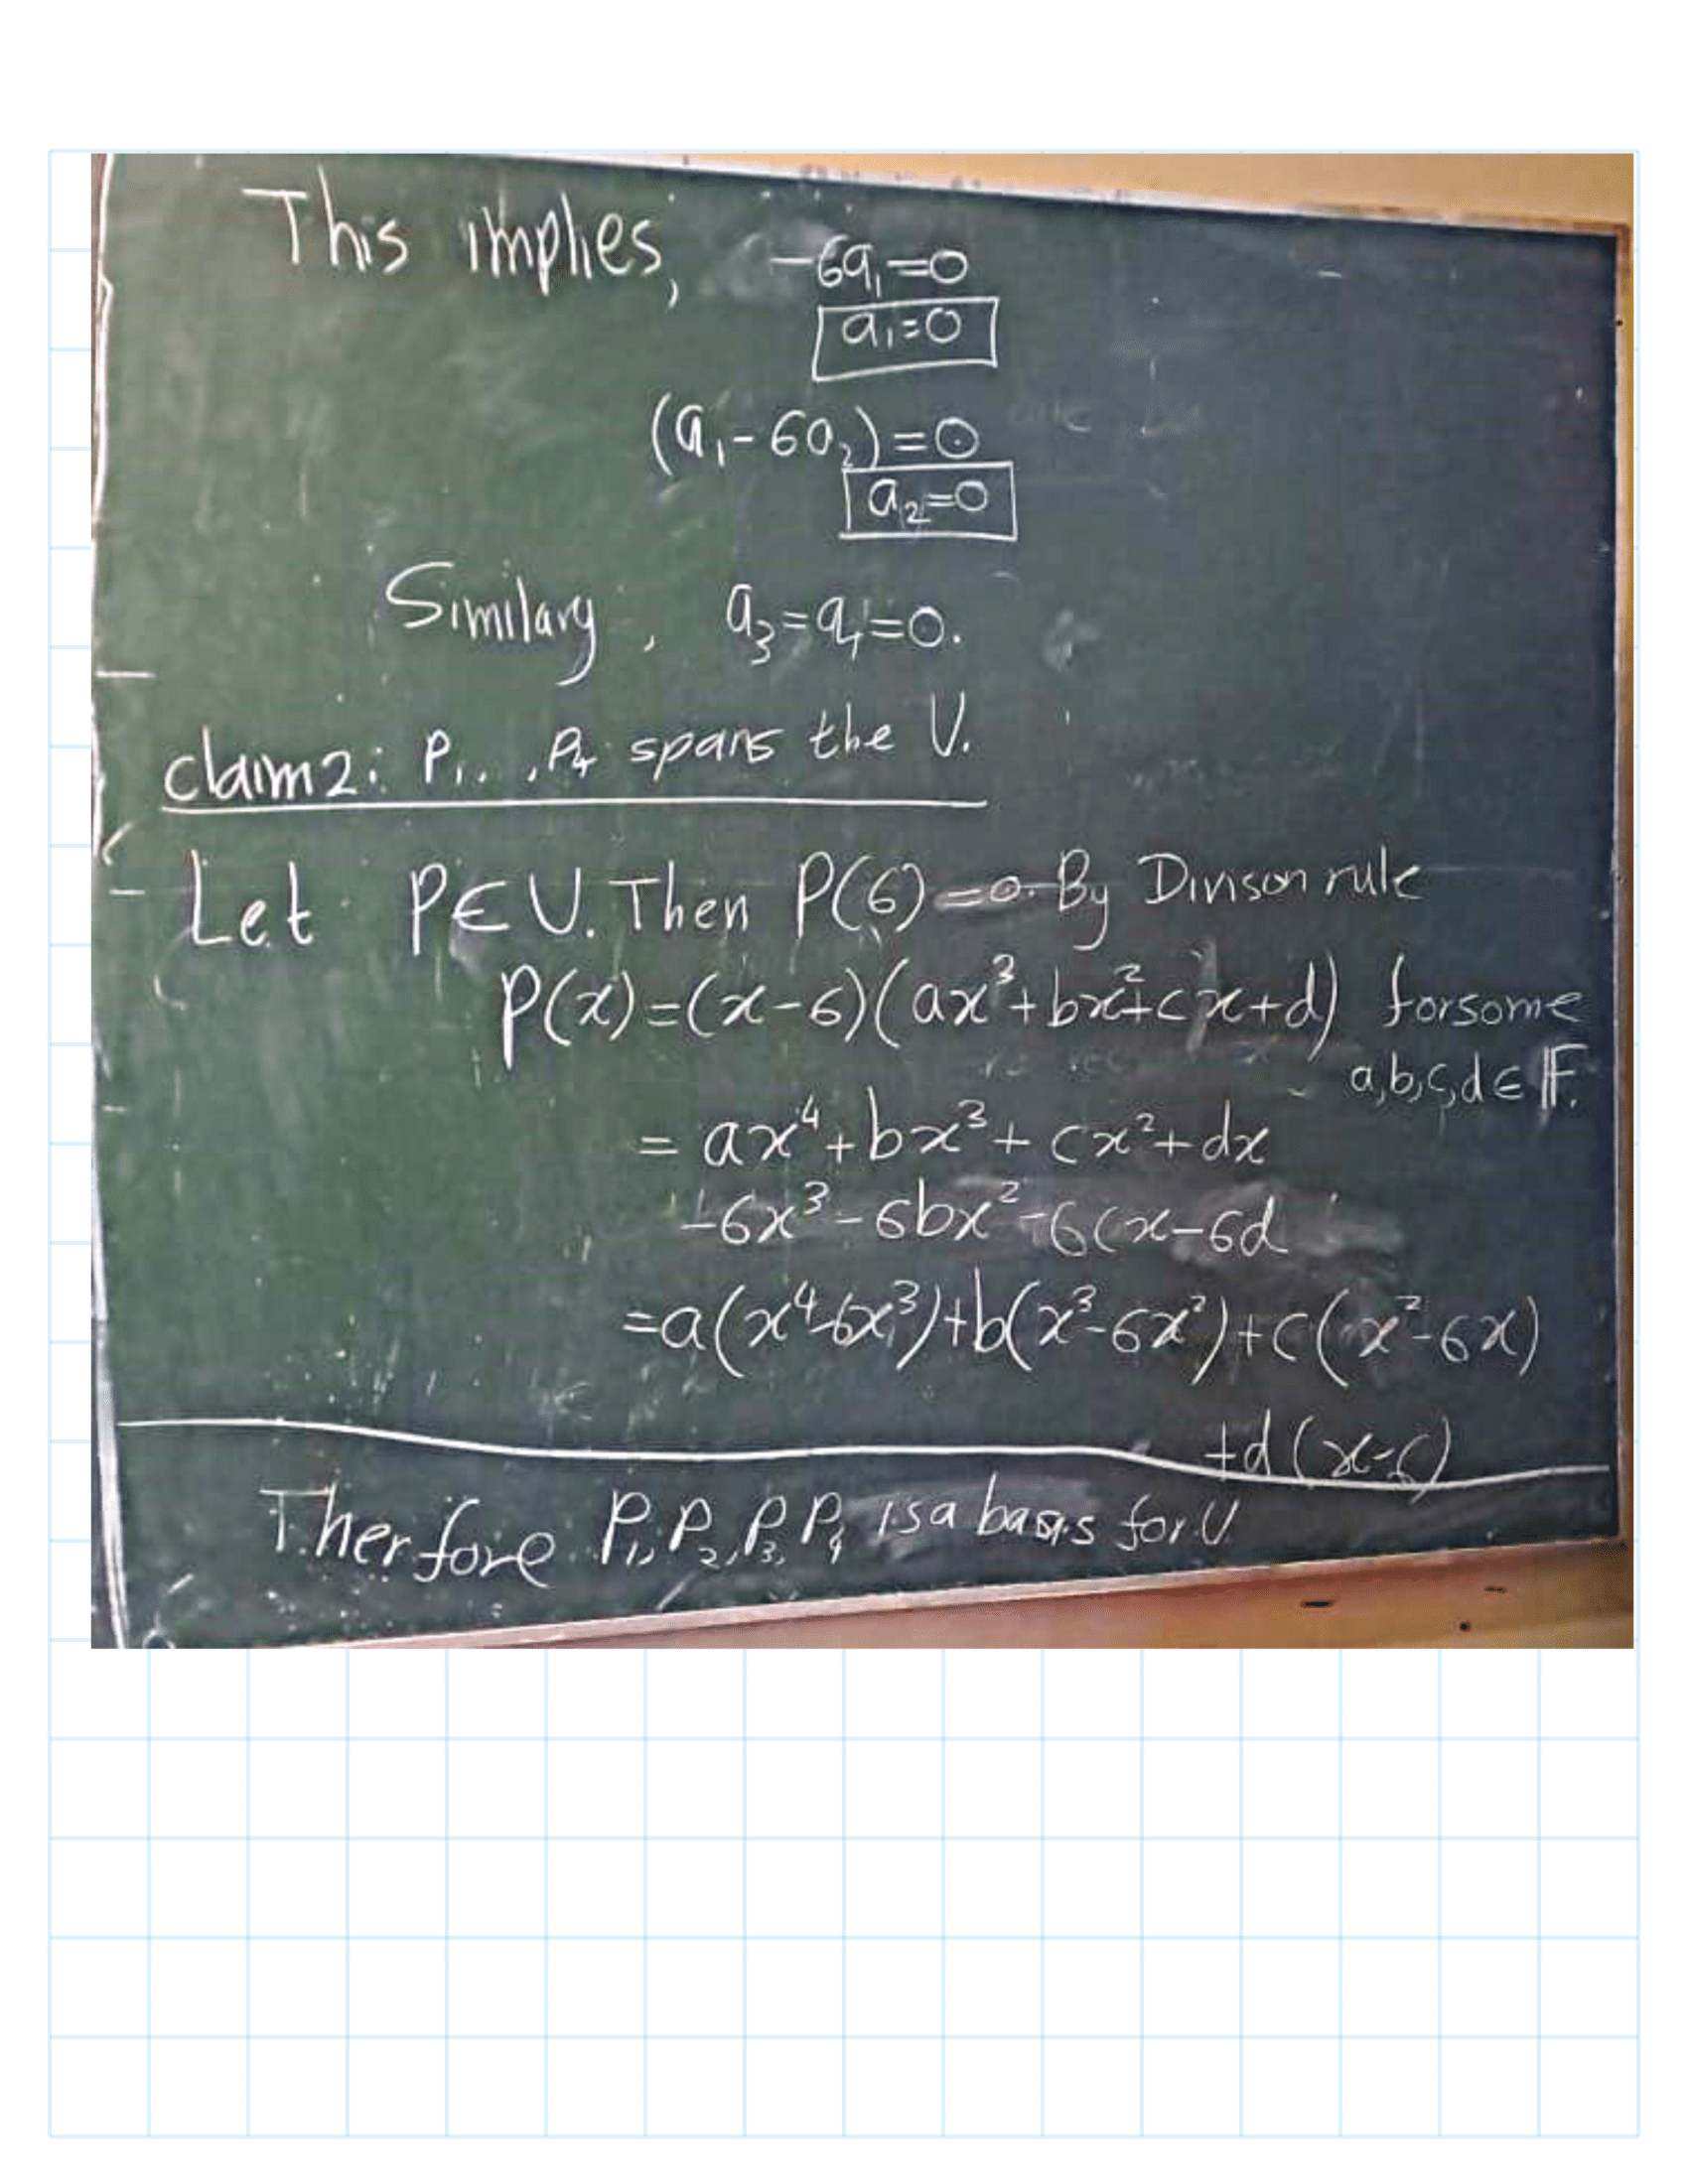 This implies, -6a₁=0
a₁=0
(a₁-6a₂)=0
a₂=0
Similary, a₃=a₄=0.
claim2: P₁..,P₄ spans the U.
Let P∈U. Then P(6)=0. By Divison rule
P(x)=(x-6)(ax³+bx²+cx+d) forsome
a,b,c,d∈𝔽.
= ax⁴+bx³+cx²+dx
-6x³-6bx²-6cx-6d
=a(x⁴-6x³)+b(x³-6x²)+c(x²-6x)
+d(x-6)
Therfore P₁,P₂,P₃,P₄ is a basis for U